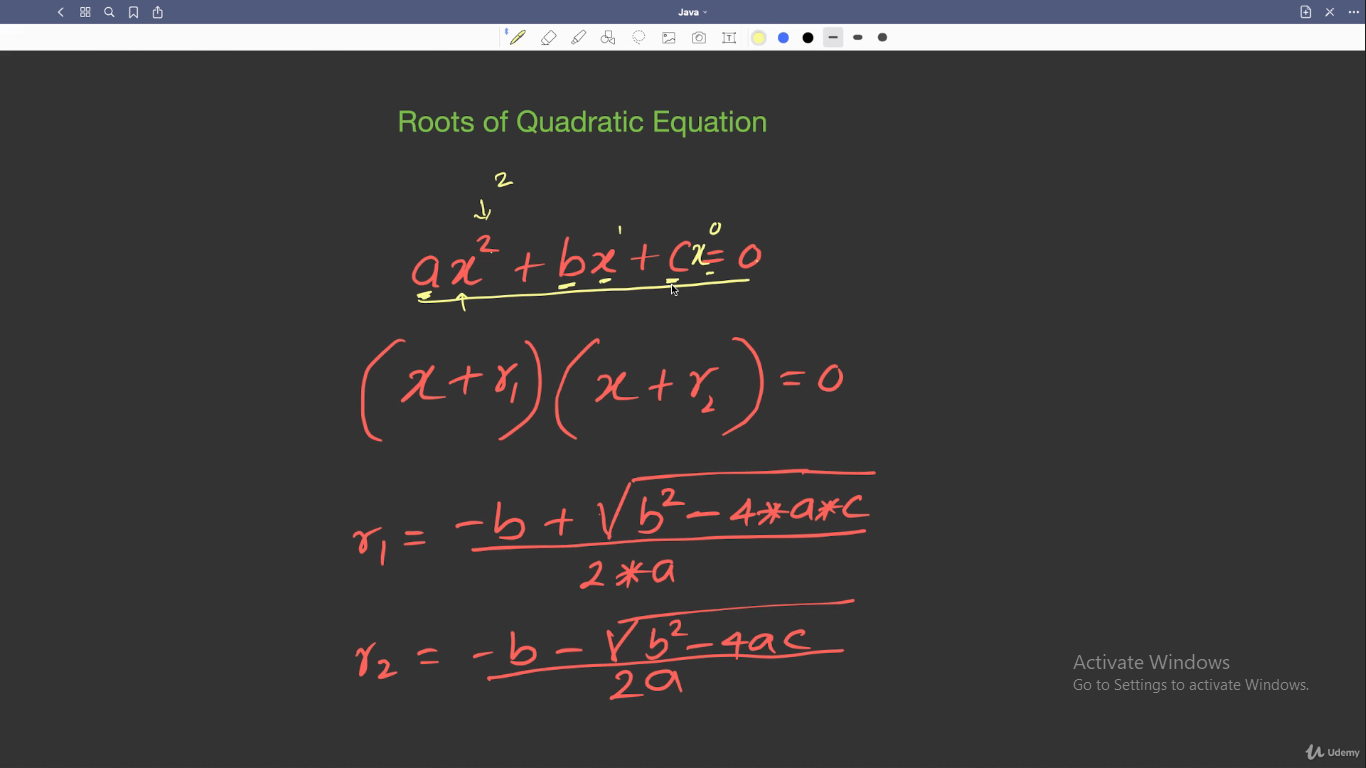 Java
Roots of Quadratic Equation
2
ax² + bx¹ + cx⁰ = 0
(x + r₁)(x + r₂) = 0
r₁ = (-b + √(b² - 4*a*c)) / (2*a)
r₂ = (-b - √(b² - 4ac)) / (2a)
Activate Windows
Go to Settings to activate Windows.
Udemy